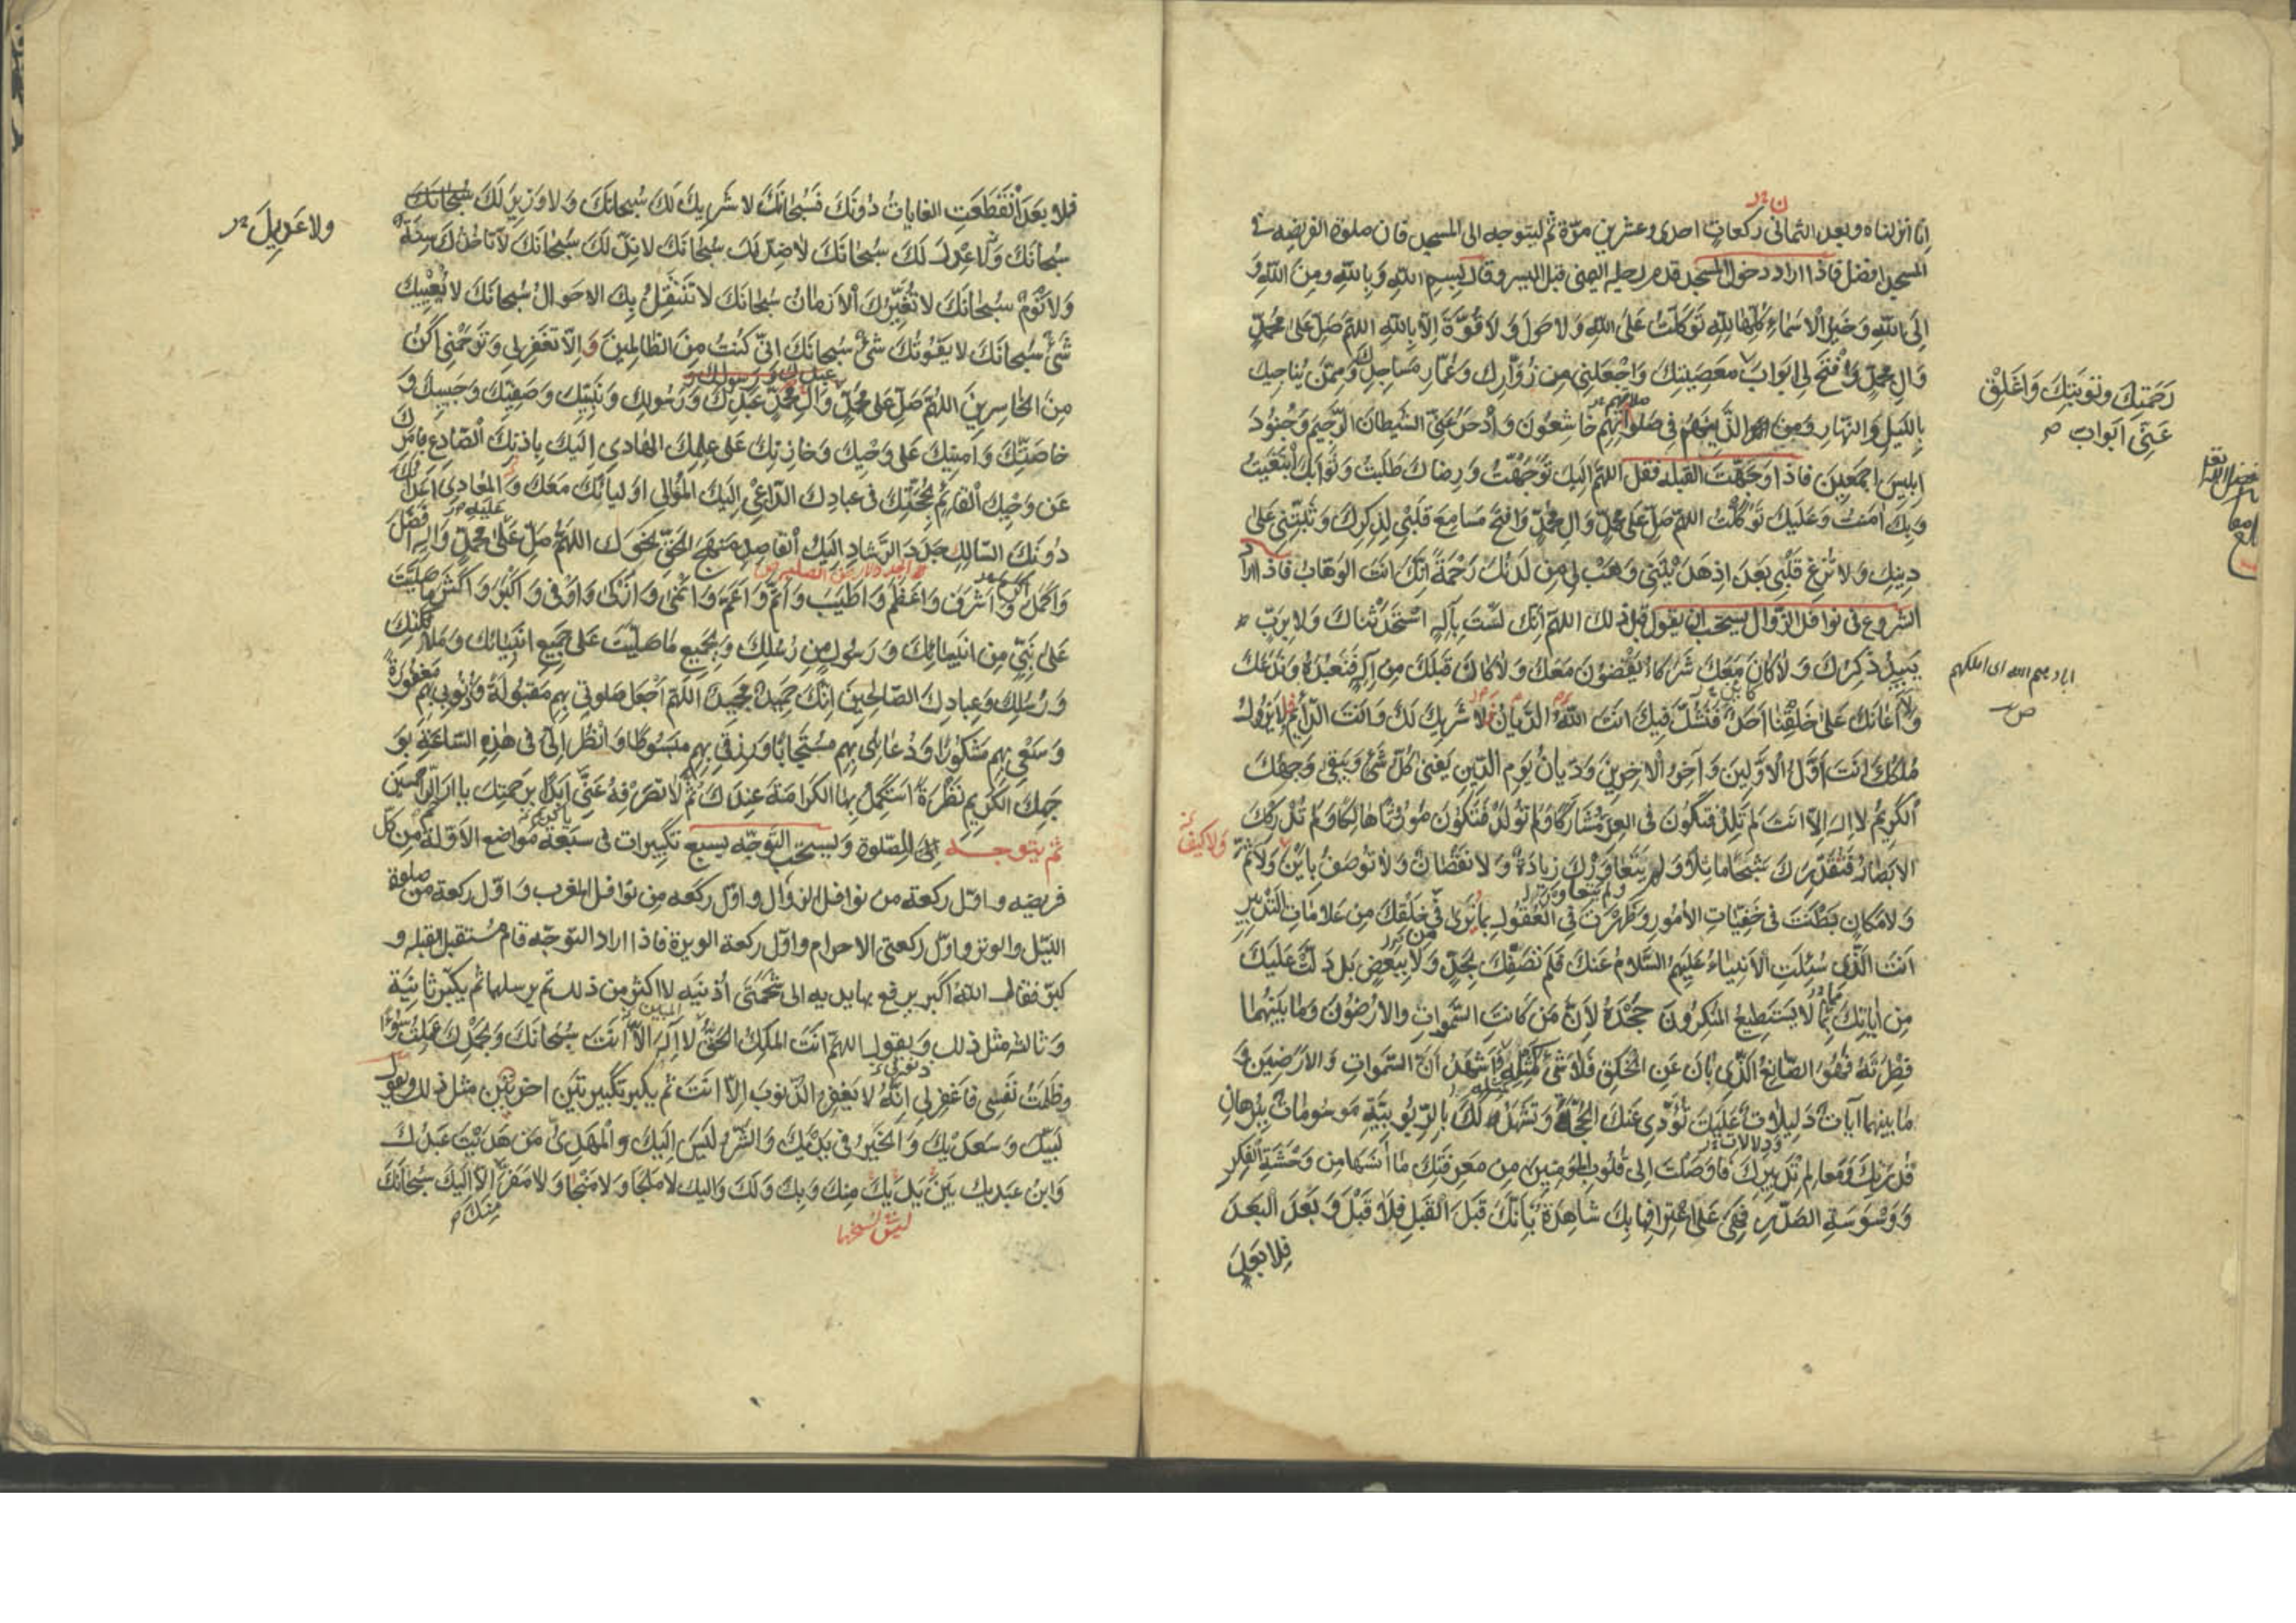 انا انزلناه وبعد الثماني ركعات احدى وعشرين مرّة ثم ليتوجه الى المسجد فان صلوة الفريضه في
المسجد افضل فاذا اراد دخول المسجد قدم رجله اليمنى قبل اليسرى وقال بِسمِ اللهِ وَبِاللهِ ومِنَ اللهِ وَ
اِلَى اللهِ وَخَيرُ الاَسمَاءِ كُلِّهَا لِلّهِ تَوَكَّلتُ عَلَى اللهِ وَلا حَولَ وَلا قُوَّةَ اِلّا بِاللهِ اللهُمَّ صَلِّ عَلى مُحَمَّدٍ
وَآلِ مُحَمَّدٍ وَافتَح لِي اَبوَابَ مَعصِيَتِكَ وَاجعَلنِي مِن زُوّارِكَ وَعُمّارِ مَسَاجِدِكَ وَمِمَّن يُنَاجِيكَ
رَحمَتِكَ وتَوبَتِكَ وَاَغلِق
عَنّي ابوَاب
بِاللَّيلِ وَالنَّهَارِ وَمِنَ الَّذِينَ هُم فِي صَلَواتِهِم خَاشِعُونَ وَادحَر عَنِّي الشَّيطَانَ الرَّجِيمَ وَجُنُودَ
اِبلِيسَ اَجمَعِينَ فاذا وَجَّهتَ القبله فقل اللهُمَّ اِلَيكَ تَوَجَّهتُ وَرِضَاكَ طَلَبتُ وَثَوَابَكَ ابتَغَيتُ
وَبِكَ آمَنتُ وَعَلَيكَ تَوَكَّلتُ اللهُمَّ صَلِّ عَلى مُحَمَّدٍ وَآلِ مُحَمَّدٍ وَافتَح مَسَامِعَ قَلبِي لِذِكرِكَ وَثَبِّتنِي عَلى
دِينِكَ وَلا تُزِغ قَلبِي بَعدَ اِذ هَدَيتَنِي وَهَب لِي مِن لَدُنكَ رَحمَةً اِنَّكَ اَنتَ الوَهّابُ فاذا اراد
الشروع في نوافل الزوال يستحب ان يقول قبل ذلك اللهُمَّ اِنَّكَ لَستَ بِاِلهٍ استَحدَثنَاكَ وَلا بِرَبٍّ
يَبِيدُ ذِكرُكَ وَلا كَانَ مَعَكَ شُرَكَاءُ يَقضُونَ مَعَكَ وَلا كَانَ قَبلَكَ مِن اِلهٍ فَنَعبُدَهُ وَنَدَعَكَ
وَلا اَعَانَكَ عَلى خَلقِنَا اَحَدٌ فَنَشُكَّ فِيكَ اَنتَ اللهُ الدَّيّانُ فَلا شَرِيكَ لَكَ وَاَنتَ الدّائِمُ لا يَزُولُ
مُلكُكَ اَنتَ اَوَّلُ الاَوَّلِينَ وَآخِرُ الآخِرِينَ وَدَيّانُ يَومِ الدِّينِ يَفنى كُلُّ شَيءٍ وَيَبقى وَجهُكَ
الكَرِيمُ لا اِلهَ اِلّا اَنتَ لَم تَلِد فَتَكُونَ فِي العِزِّ مُشَارَكًا وَلَم تُولَد فَتَكُونَ مَورُوثًا هَالِكًا وَلَم تُدرِككَ
الاَبصَارُ فَتُقَدِّرَكَ شَبَحًا مَاثِلًا وَلَم يَتَعَاوَركَ زِيَادَةٌ وَلا نُقصَانٌ وَلا تُوصَفُ بِاَينٍ وَلا ثَمَّ
وَلا كَيفٍ
وَلا مَكَانٍ بَطَنتَ فِي خَفِيّاتِ الاُمُورِ وَظَهَرتَ فِي العُقُولِ بِمَا نَرى فِي خَلقِكَ مِن عَلامَاتِ التَّدبِيرِ
اَنتَ الَّذِي سُئِلَتِ الاَنبِيَاءُ عَلَيهِمُ السَّلامُ عَنكَ فَلَم تَصِفكَ بِحَدٍّ وَلا بِبَعضٍ بَل دَلَّت عَلَيكَ
مِن آيَاتِكَ بِمَا لا يَستَطِيعُ المُنكِرُونَ جَحدَهُ لِاَنَّ مَن كَانَتِ السَّمواتُ والاَرَضُونَ وَمَا بَينَهُمَا
فِطرَتَهُ فَهُوَ الصّانِعُ الَّذِي بَانَ عَنِ الخَلقِ فَلا شَيءَ كَمِثلِهِ وَاَشهَدُ اَنَّ السَّموَاتِ وَالاَرَضِينَ وَ
مَا بَينَهُمَا آيَاتٌ دَلِيلاتٌ عَلَيكَ تُؤَدِّي عَنكَ الحُجَّةَ وَتَشهَدُ لَكَ بِالرُّبُوبِيَّةِ مَوسُومَاتٌ بِبُرهَانِ
قُدرَتِكَ وَمَعَالِمِ تَدبِيرِكَ فَاَوصَلتَ اِلى قُلُوبِ المُؤمِنِينَ مِن مَعرِفَتِكَ مَا آنَسَهَا مِن وَحشَةِ الفِكرِ
وَوَسوَسَةِ الصَّدرِ فَهِيَ عَلَى اعتِرَافِهَا بِكَ شَاهِدَةٌ بِاَنَّكَ قَبلَ القَبلِ بِلا قَبلٍ وَبَعدَ البَعدِ
فلا بَعدَ
فلا بَعدَ انقَطَعَتِ الغَايَاتُ دُونَكَ فَسُبحَانَكَ لا شَرِيكَ لَكَ سُبحَانَكَ وَلا وَزِيرَ لَكَ سُبحَانَكَ
ولا عَدِيلَ
سُبحَانَكَ وَلا عِدلَ لَكَ سُبحَانَكَ لا ضِدَّ لَكَ سُبحَانَكَ لا نِدَّ لَكَ سُبحَانَكَ لا تَأخُذُكَ سِنَةٌ
وَلا نَومٌ سُبحَانَكَ لا تُغَيِّرُكَ الاَزمَانُ سُبحَانَكَ لا تَنتَقِلُ بِكَ الاَحوَالُ سُبحَانَكَ لا يُعيِيكَ
شَيءٌ سُبحَانَكَ لا يَفُوتُكَ شَيءٌ سُبحَانَكَ اِنِّي كُنتُ مِنَ الظّالِمِينَ وَاِلّا تَغفِر لِي وَتَرحَمنِي اَكُن
مِنَ الخَاسِرِينَ اللهُمَّ صَلِّ عَلى مُحَمَّدٍ وَآلِ مُحَمَّدٍ عَبدِكَ وَرَسُولِكَ وَنَبِيِّكَ وَصَفِيِّكَ وَحَبِيبِكَ وَ
خَاصَّتِكَ وَاَمِينِكَ عَلى وَحيِكَ وَخَازِنِكَ عَلى عِلمِكَ الهَادِي اِلَيكَ بِاِذنِكَ الصّادِعِ بِاَمرِكَ
عَن وَحيِكَ القَائِمِ بِحُجَّتِكَ فِي عِبَادِكَ الدّاعِي اِلَيكَ المُوَالِي اَولِيَائَكَ مَعَكَ وَالمُعَادِي اَعدَائَكَ
دُونَكَ السّالِكِ جَدَدَ الرَّشَادِ اِلَيكَ القَاصِدِ مَنهَجَ الحَقِّ نَحوَكَ اللهُمَّ صَلِّ عَلى مُحَمَّدٍ وَآلِهِ اَفضَلَ
وَاَكمَلَ وَاَشرَفَ وَاَعظَمَ وَاَطيَبَ وَاَتَمَّ وَاَعَمَّ وَاَنمى وَاَزكى وَاَوفى وَاَكبَرَ وَاَكثَرَ مَا صَلَّيتَ
عَلى نَبِيٍّ مِن اَنبِيَائِكَ وَرَسُولٍ مِن رُسُلِكَ وَبِجَمِيعِ مَا صَلَّيتَ عَلى جَمِيعِ اَنبِيَائِكَ وَمَلائِكَتِكَ
وَرُسُلِكَ وَعِبَادِكَ الصّالِحِينَ اِنَّكَ حَمِيدٌ مَجِيدٌ اللهُمَّ اجعَل صَلَوتِي بِهِم مَقبُولَةً وَذُنُوبِي بِهِم مَغفُورَةً
وَسَعيِي بِهِم مَشكُورًا وَدُعَائِي بِهِم مُستَجَابًا وَرِزقِي بِهِم مَبسُوطًا وَانظُر اِلَيَّ فِي هذِهِ السّاعَةِ بِوَ
جهِكَ الكَرِيمِ نَظرَةً اَستَكمِلُ بِهَا الكَرَامَةَ عِندَكَ ثُمَّ لا تَصرِفهُ عَنِّي اَبَدًا بِرَحمَتِكَ يا ارحم الراحمين
ثم يتوجه الى الصّلوة وَيستحب التوجّه بسبع تكبيرات في سبعة مواضع الاوّلة من كلّ
فريضه واوّل ركعة من نوافل الزوال واوّل ركعه مِن نوافل المغرب واوّل ركعة من صلوة
الليّل والوتر واوّل ركعتي الاحرام واوّل ركعة الوتيرة فاذا اراد التوجّه قام مُستقبل القبله و
كبّر فقال اللهُ اكبر يرفع بها يديه الى شحمَتي أذنيه لا اكثر من ذلك ثم يرسلهما ثم يكبّر ثانية
وثالثه مثل ذلك ويقول اللهُمَّ اَنتَ المَلِكُ الحَقُّ لا اِلهَ اِلّا اَنتَ سُبحَانَكَ وَبِحَمدِكَ عَمِلتُ سُوءًا
وظَلَمتُ نَفسِي فَاغفِر لِي اِنَّهُ لا يَغفِرُ الذُّنُوبَ اِلّا اَنتَ ثم يكبر تكبيرتَين اخرتين مثل ذلك ويقول
لَبَّيكَ وَسَعدَيكَ وَالخَيرُ فِي يَدَيكَ وَالشَّرُّ لَيسَ اِلَيكَ وَالمَهدِيُّ مَن هَدَيتَ عَبدُكَ
وَابنُ عَبدَيكَ بَينَ يَدَيكَ مِنكَ وَبِكَ وَلَكَ وَاِليكَ لا مَلجَأَ وَلا مَنجَا وَلا مَفَرَّ اِلّا اِلَيكَ سُبحَانَكَ
مِنكَ